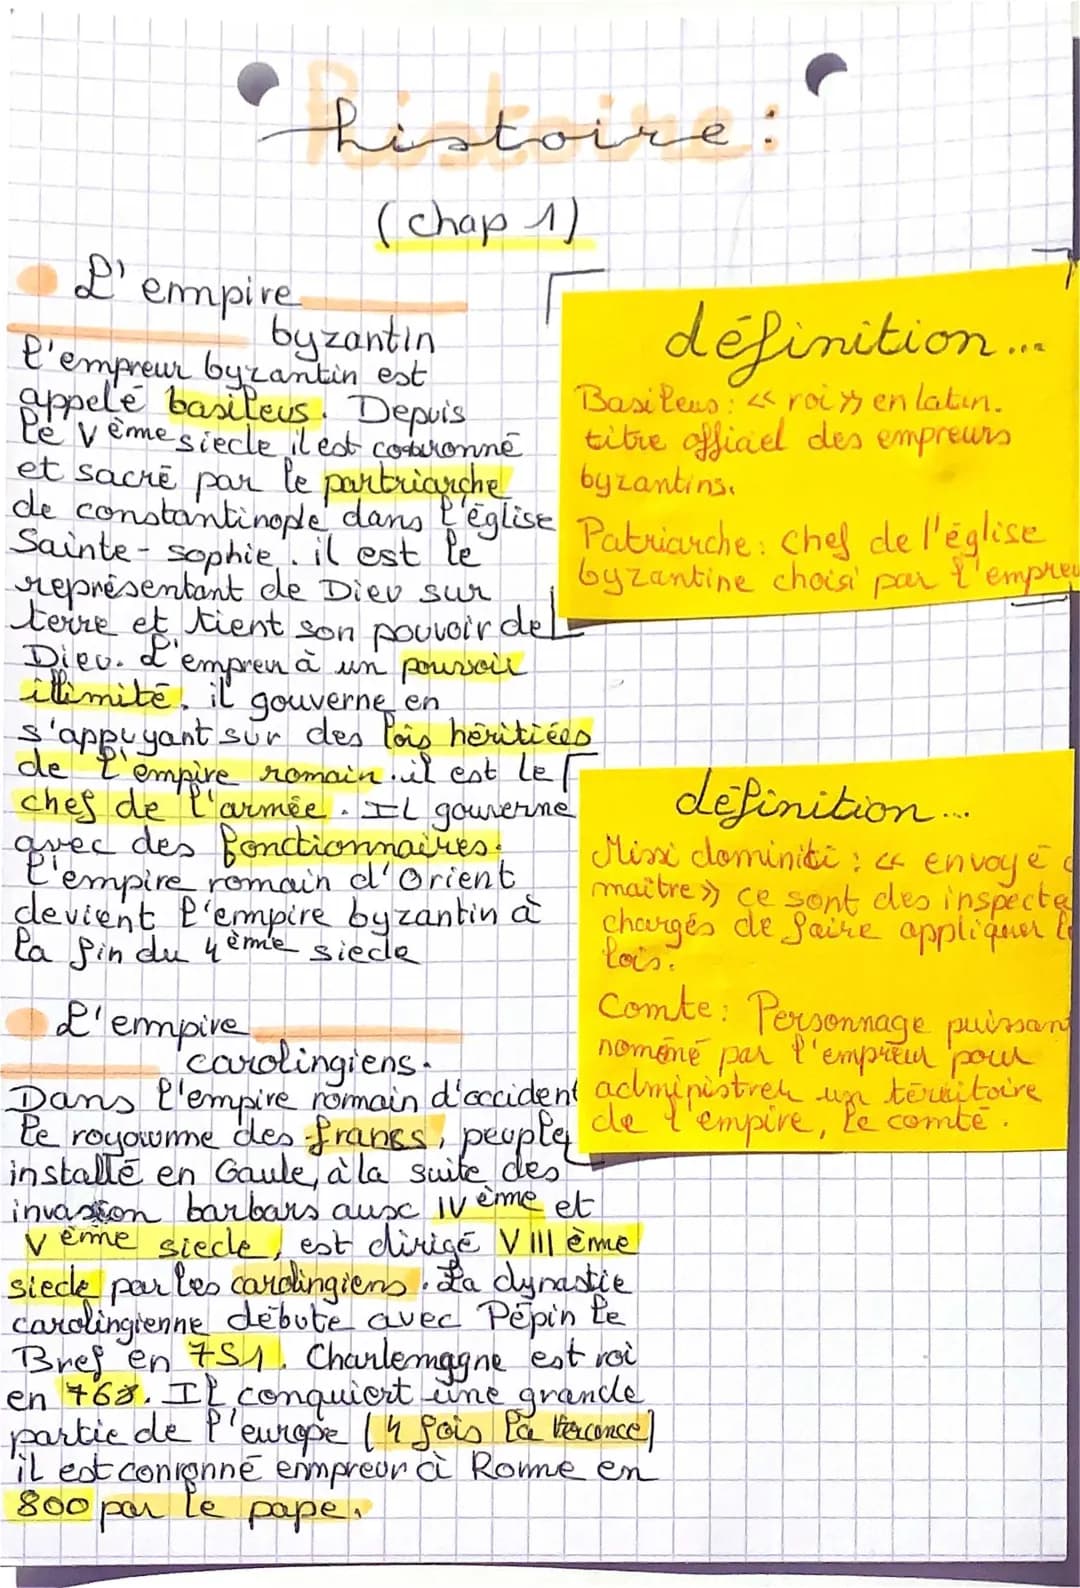 histoire :
(chap 1)
L'empire
byzantin
l'empreur byzantin est
appelé basileus. Depuis
le Vème siecle il est couronné
et sacré par le partriarche
de constantinople dans l'église
Sainte-sophie. il est le
représentant de Dieu sur
terre et tient son pouvoir de
Dieu. L'empreu à un pouvoir
illimité. il gouverne en
s'appuyant sur des lois héritiées
de l'empire romain. il est le
chef de l'armée. IL gouverne
avec des fonctionnaires.
l'empire romain d'Orient
devient l'empire byzantin à
la fin du 4ème siecle
définition...
Basileus : « roi » en latin.
titre officiel des empreurs
byzantins.
Patriarche : chef de l'église
byzantine choisi par l'empreu
L'empire
carolingiens.
Dans l'empire romain d'occident
le royaume des francs, peuple
installé en Gaule, à la suite des
invasion barbars aux IVème et
Vème siecle, est dirigé VIIIème
siecle par les carolingiens. La dynastie
carolingienne débute avec Pépin le
Bref en 751. Charlemagne est roi
en 768. IL conquiert une grande
partie de l'europe (4 fois la
il est couronné empreur à Rome en
800 par le pape.
définition...
Missi dominiti : « envoyé
maître » ce sont des inspecte
chargés de faire appliquer le
lois.
Comte : Personnage puissant
nommé par l'empreur pour
administrer un térritoire
de l'empire, le comté.